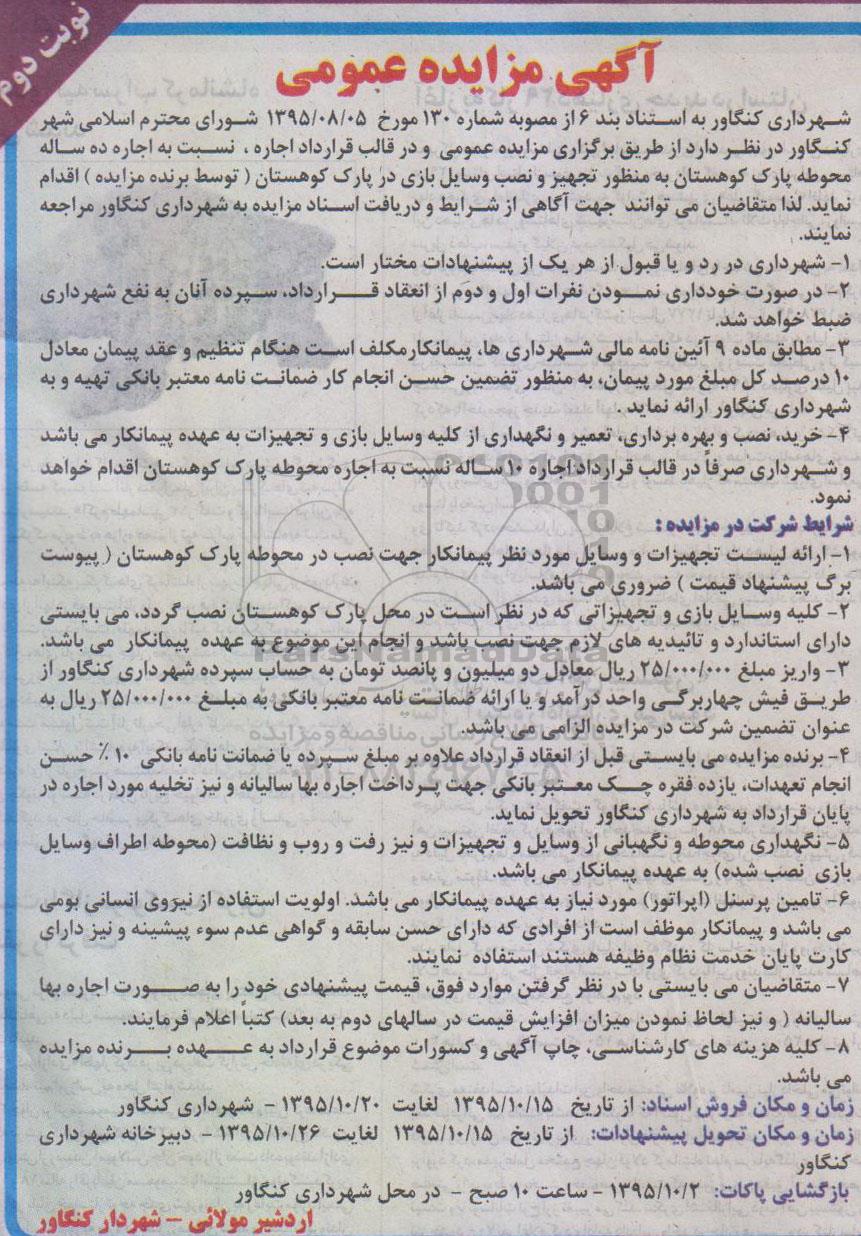 نوبت دوم
آگهی مزایده عمومی
شهرداری کنگاور به استناد بند ۶ از مصوبه شماره ۱۳۰ مورخ ۱۳۹۵/۰۸/۰۵ شورای محترم اسلامی شهر
کنگاور در نظر دارد از طریق برگزاری مزایده عمومی و در قالب قرارداد اجاره ، نسبت به اجاره ده ساله
محوطه پارک کوهستان به منظور تجهیز و نصب وسایل بازی در پارک کوهستان ( توسط برنده مزایده ) اقدام
نماید. لذا متقاضیان می توانند جهت آگاهی از شرایط و دریافت اسناد مزایده به شهرداری کنگاور مراجعه
نمایند.
۱- شهرداری در رد و یا قبول از هر یک از پیشنهادات مختار است.
۲- در صورت خودداری نمودن نفرات اول و دوم از انعقاد قرارداد، سپرده آنان به نفع شهرداری
ضبط خواهد شد.
۳- مطابق ماده ۹ آئین نامه مالی شهرداری ها، پیمانکارمکلف است هنگام تنظیم و عقد پیمان معادل
۱۰ درصد کل مبلغ مورد پیمان، به منظور تضمین حسن انجام کار ضمانت نامه معتبر بانکی تهیه و به
شهرداری کنگاور ارائه نماید .
۴- خرید، نصب و بهره برداری، تعمیر و نگهداری از کلیه وسایل بازی و تجهیزات به عهده پیمانکار می باشد
و شهرداری صرفاً در قالب قرارداد اجاره ۱۰ ساله نسبت به اجاره محوطه پارک کوهستان اقدام خواهد
نمود.
شرایط شرکت در مزایده :
۱- ارائه لیست تجهیزات و وسایل مورد نظر پیمانکار جهت نصب در محوطه پارک کوهستان ( پیوست
برگ پیشنهاد قیمت ) ضروری می باشد.
۲- کلیه وسایل بازی و تجهیزاتی که در نظر است در محل پارک کوهستان نصب گردد، می بایستی
دارای استاندارد و تائیدیه های لازم جهت نصب باشد و انجام این موضوع به عهده پیمانکار می باشد.
۳- واریز مبلغ ۲۵/۰۰۰/۰۰۰ ریال معادل دو میلیون و پانصد تومان به حساب سپرده شهرداری کنگاور از
طریق فیش چهاربرگی واحد درآمد و یا ارائه ضمانت نامه معتبر بانکی به مبلغ ۲۵/۰۰۰/۰۰۰ ریال به
عنوان تضمین شرکت در مزایده الزامی می باشد.
۴- برنده مزایده می بایستی قبل از انعقاد قرارداد علاوه بر مبلغ سپرده یا ضمانت نامه بانکی ۱۰ ٪ حسن
انجام تعهدات، یازده فقره چک معتبر بانکی جهت پرداخت اجاره بها سالیانه و نیز تخلیه مورد اجاره در
پایان قرارداد به شهرداری کنگاور تحویل نماید.
۵- نگهداری محوطه و نگهبانی از وسایل و تجهیزات و نیز رفت و روب و نظافت (محوطه اطراف وسایل
بازی نصب شده) به عهده پیمانکار می باشد.
۶- تامین پرسنل (اپراتور) مورد نیاز به عهده پیمانکار می باشد. اولویت استفاده از نیروی انسانی بومی
می باشد و پیمانکار موظف است از افرادی که دارای حسن سابقه و گواهی عدم سوء پیشینه و نیز دارای
کارت پایان خدمت نظام وظیفه هستند استفاده نمایند.
۷- متقاضیان می بایستی با در نظر گرفتن موارد فوق، قیمت پیشنهادی خود را به صورت اجاره بها
سالیانه ( و نیز لحاظ نمودن میزان افزایش قیمت در سالهای دوم به بعد) کتباً اعلام فرمایند.
۸- کلیه هزینه های کارشناسی، چاپ آگهی و کسورات موضوع قرارداد به عهده برنده مزایده
می باشد.
زمان و مکان فروش اسناد: از تاریخ ۱۳۹۵/۱۰/۱۵ لغایت ۱۳۹۵/۱۰/۲۰ - شهرداری کنگاور
زمان و مکان تحویل پیشنهادات: از تاریخ ۱۳۹۵/۱۰/۱۵ لغایت ۱۳۹۵/۱۰/۲۶ - دبیرخانه شهرداری
کنگاور
بازگشایی پاکات: ۱۳۹۵/۱۰/۲ - ساعت ۱۰ صبح - در محل شهرداری کنگاور
اردشیر مولائی - شهردار کنگاور
ParsNamadData